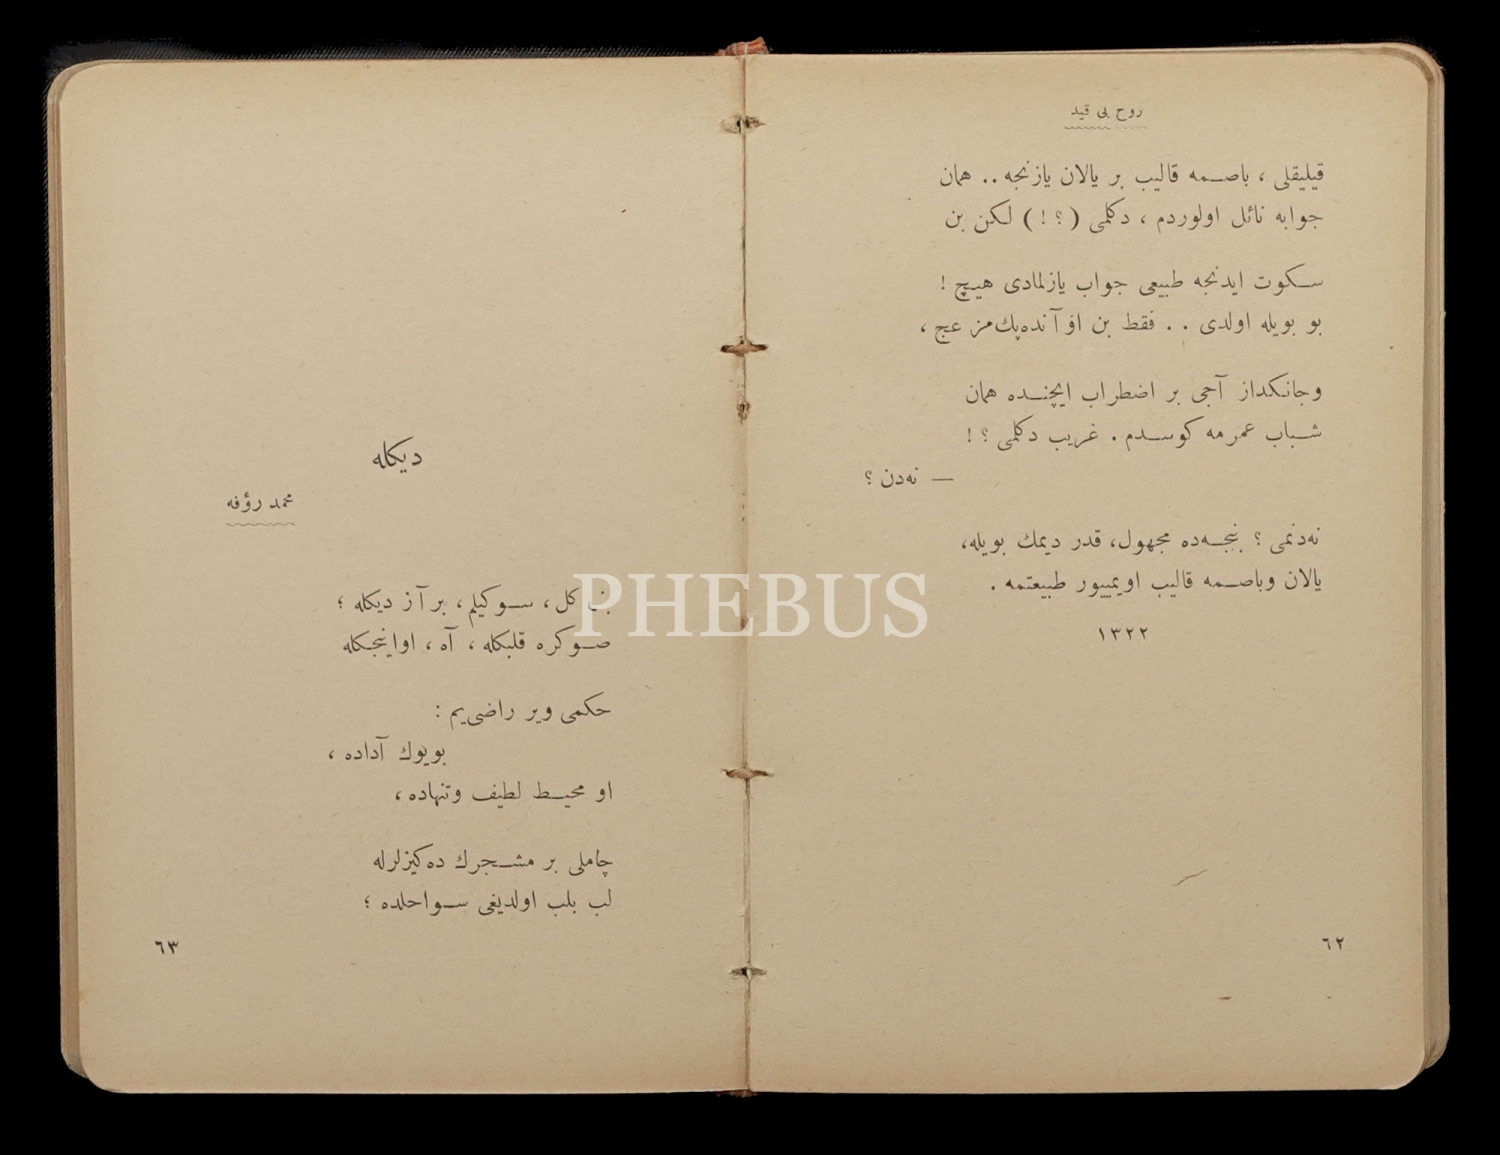 روح بی قید
قیلیقلی ، باصمه قالیب بر یالان یازنجه .. همان
جوابه نائل اولوردم ، دکلمی (؟!) لکن بن
سکوت ایدنجه طبیعی جواب یازلمادی هیچ !
بو بویله اولدی .. فقط بن او آنده‌پك
وجانکداز آجی بر اضطراب ایچنده همان
شباب عمرمه کوسدم . غریب دکلمی ؟!
— نه‌دن ؟
نه‌دنمی ؟ بنجه‌ده مجهول، قدر دیمك بویله،
یالان وباصمه قالیب اویمییور طبیعتمه .
١٣٢٢
٦٢
دیکله
محمد رؤفه
کل ، سوکیلم ، بر آز دیکله ؛
صوکره قلبکله ، آه ، او اینجکله
حکمی ویر راضی‌یم :
بویوك آداده ،
او محیط لطیف وتنهاده ،
چاملی بر مشجرك ده‌کیزلرله
لب بلب اولدیغی سواحلده ؛
٦٣
PHEBUS